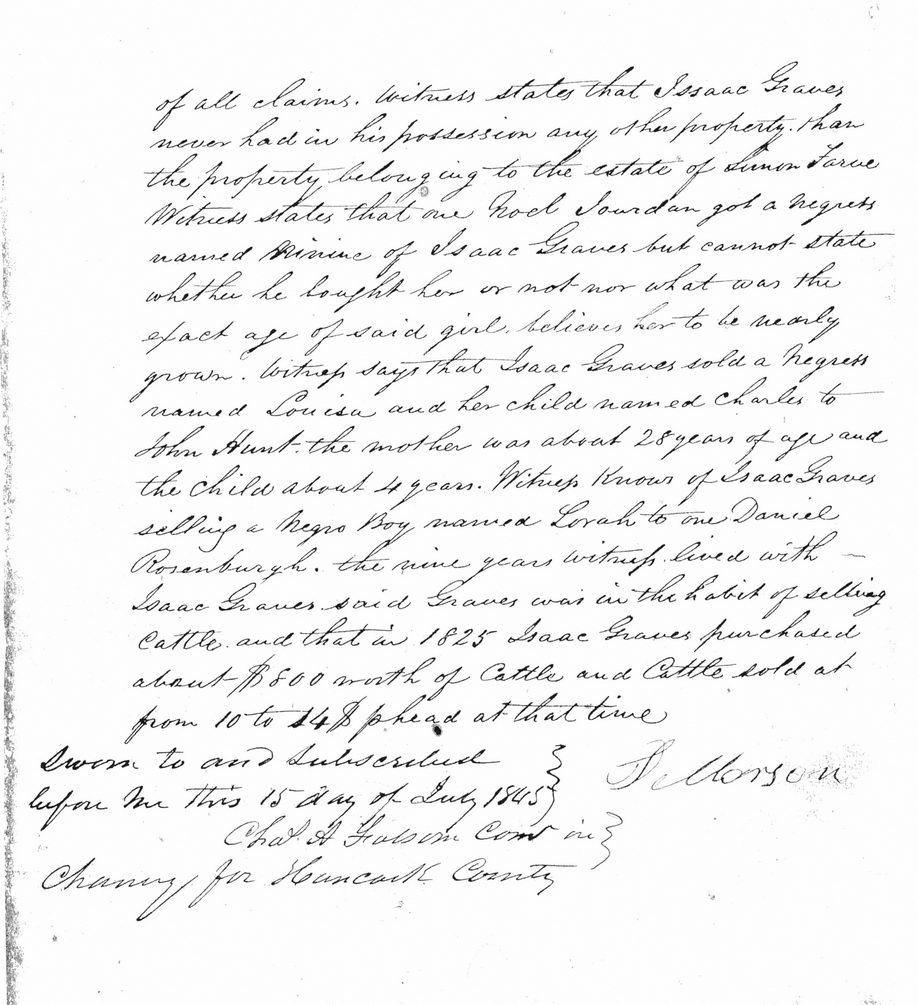 of all claims. Witness states that Issaac Graves
never had in his possession any other property. than
the property belonging to the estate of Simon Farve
Witness states that one Noel Jourdan got a Negress
named of Isaac Graves but cannot state
whether he bought her or not nor what was the
exact age of said girl. believes her to be nearly
grown. Witness says that Isaac Graves sold a Negress
named Louisa and her child named Charles to
John Hunt. the mother was about 28 years of age and
the child about 4 years. Witness Knows of Isaac Graves
selling a Negro Boy named Lorah to one Daniel
Rosenburgh. the nine years witness lived with —
Isaac Graves said Graves was in the habit of selling
Cattle. and that in 1825 Isaac Graves purchased
about $800 worth of Cattle and Cattle sold at
from 10 to 14$ phead at that time
Sworn to and Subscribed
before Me this 15 day of July 1845
Morson
Chas. A Folsom Com in
Chancy for Hancock County